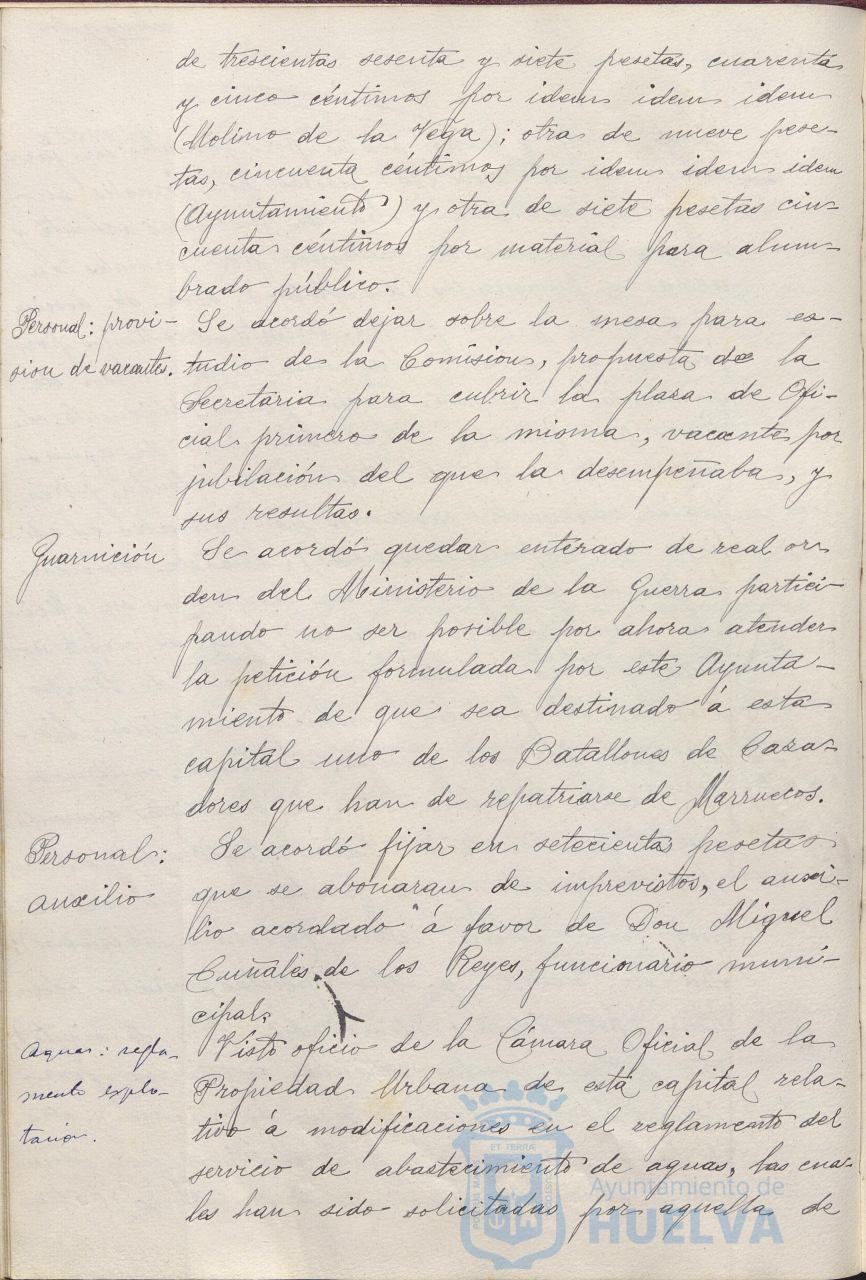 de trescientas sesenta y siete pesetas, cuarenta
y cinco céntimos por idem idem idem
(Molino de la Vega); otra de nueve pese-
tas, cincuenta céntimos por idem idem idem
(Ayuntamiento) y otra de siete pesetas cin-
cuenta céntimos por material para alum-
brado público.
Personal: provi-
sion de vacantes.
Se acordó dejar sobre la mesa para es-
tudio de la Comision, propuesta de la
Secretaria para cubrir la plaza de Ofi-
cial primero de la misma, vacante por
jubilación del que la desempeñaba, y
sus resultas.
Guarnición
Se acordó quedar enterado de real or
den del Ministerio de la Guerra partici
pando no ser posible por ahora atender
la petición formulada por este Ayunta-
miento de que sea destinado á esta
capital uno de los Batallones de Caza-
dores que han de repatriarse de Marruecos.
Personal:
auxilio
Se acordó fijar en setecientas pesetas
que se abonaran de imprevistos, el auxi-
lio acordado á favor de Don Miguel
Cuñales de los Reyes, funcionario muni-
cipal.
Aguas: regla-
mento explo-
tación.
Visto oficio de la Cámara Oficial de la
Propiedad Urbana de esta capital rela-
tivo á modificaciones en el reglamento del
servicio de abastecimiento de aguas, las cua-
les han sido solicitadas por aquella de
Ayuntamiento de
HUELVA